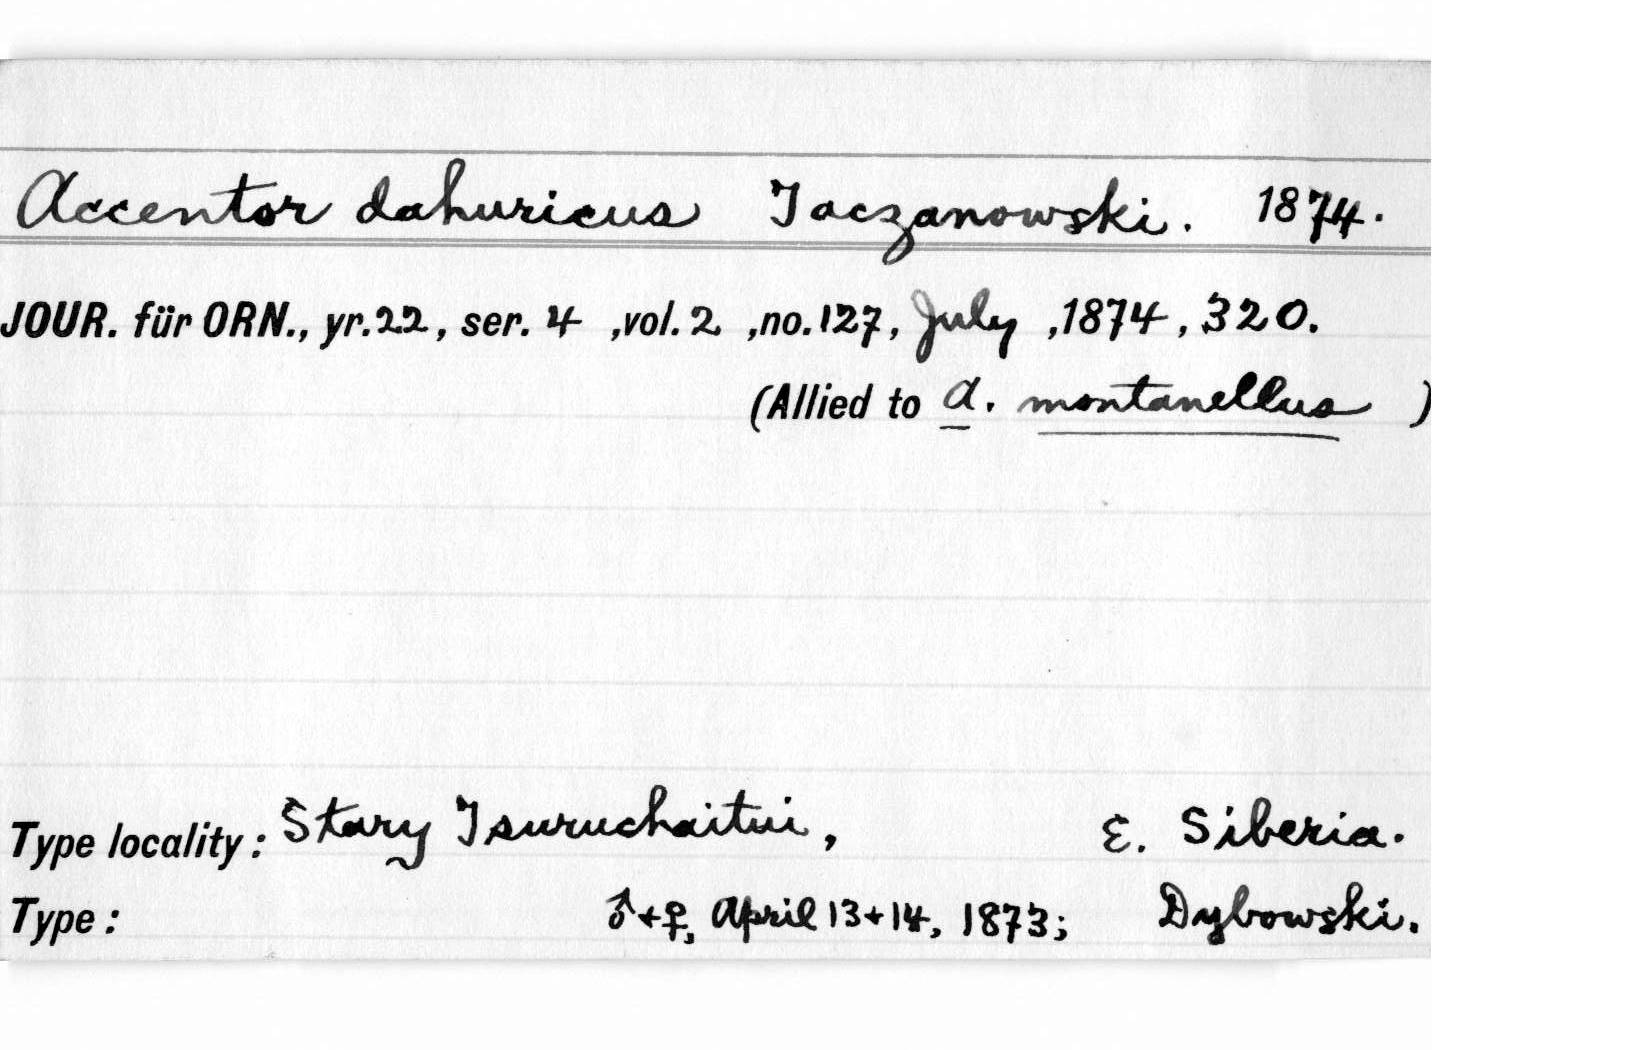 Accentor dahuricus Taczanowski. 1874.
JOUR. für ORN., yr.22, ser. 4 ,vol. 2 ,no.127, July ,1874, 320.
(Allied to A. montanellus )
Type locality: Stary Tsuruchaitui, E. Siberia.
Type: ♂+♀, April 13+14, 1873; Dybowski.